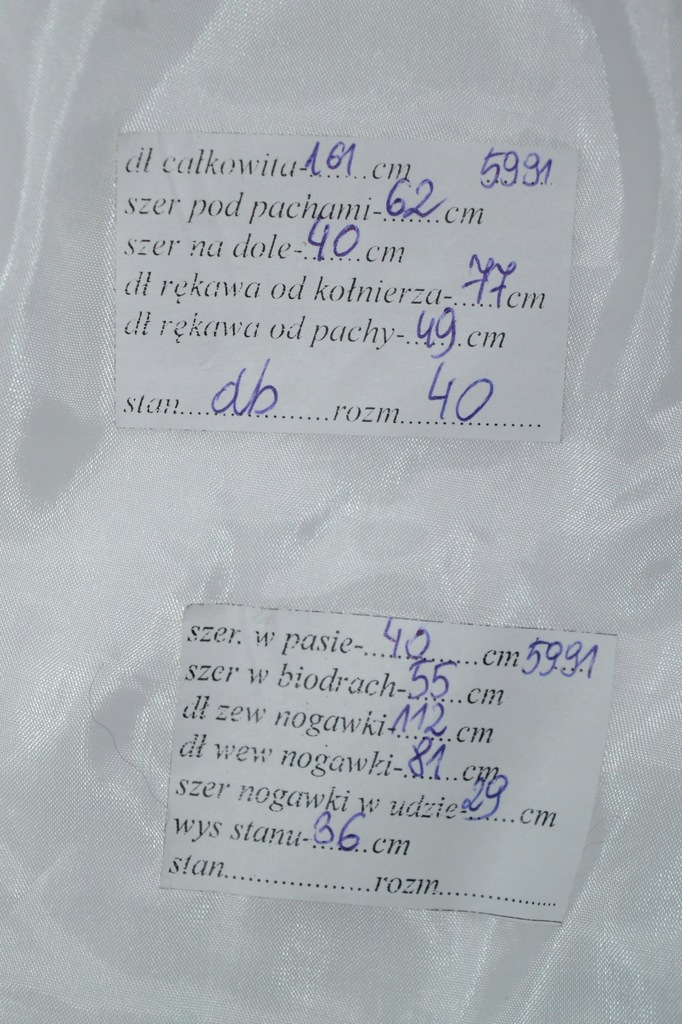 dł całkowita-161......cm 5991
szer pod pachami-62.......cm
szer na dole-.40.......cm
dł rękawa od kołnierza-.....77cm
dł rękawa od pachy-..49.....cm
stan....db............rozm...40...............
szer. w pasie-...40.........cm 5991
szer w biodrach-55......cm
dł zew nogawki-112......cm
dł wew nogawki-.81......cm
szer nogawki w udzie-29.....cm
wys stanu-.36....cm
stan....................rozm................